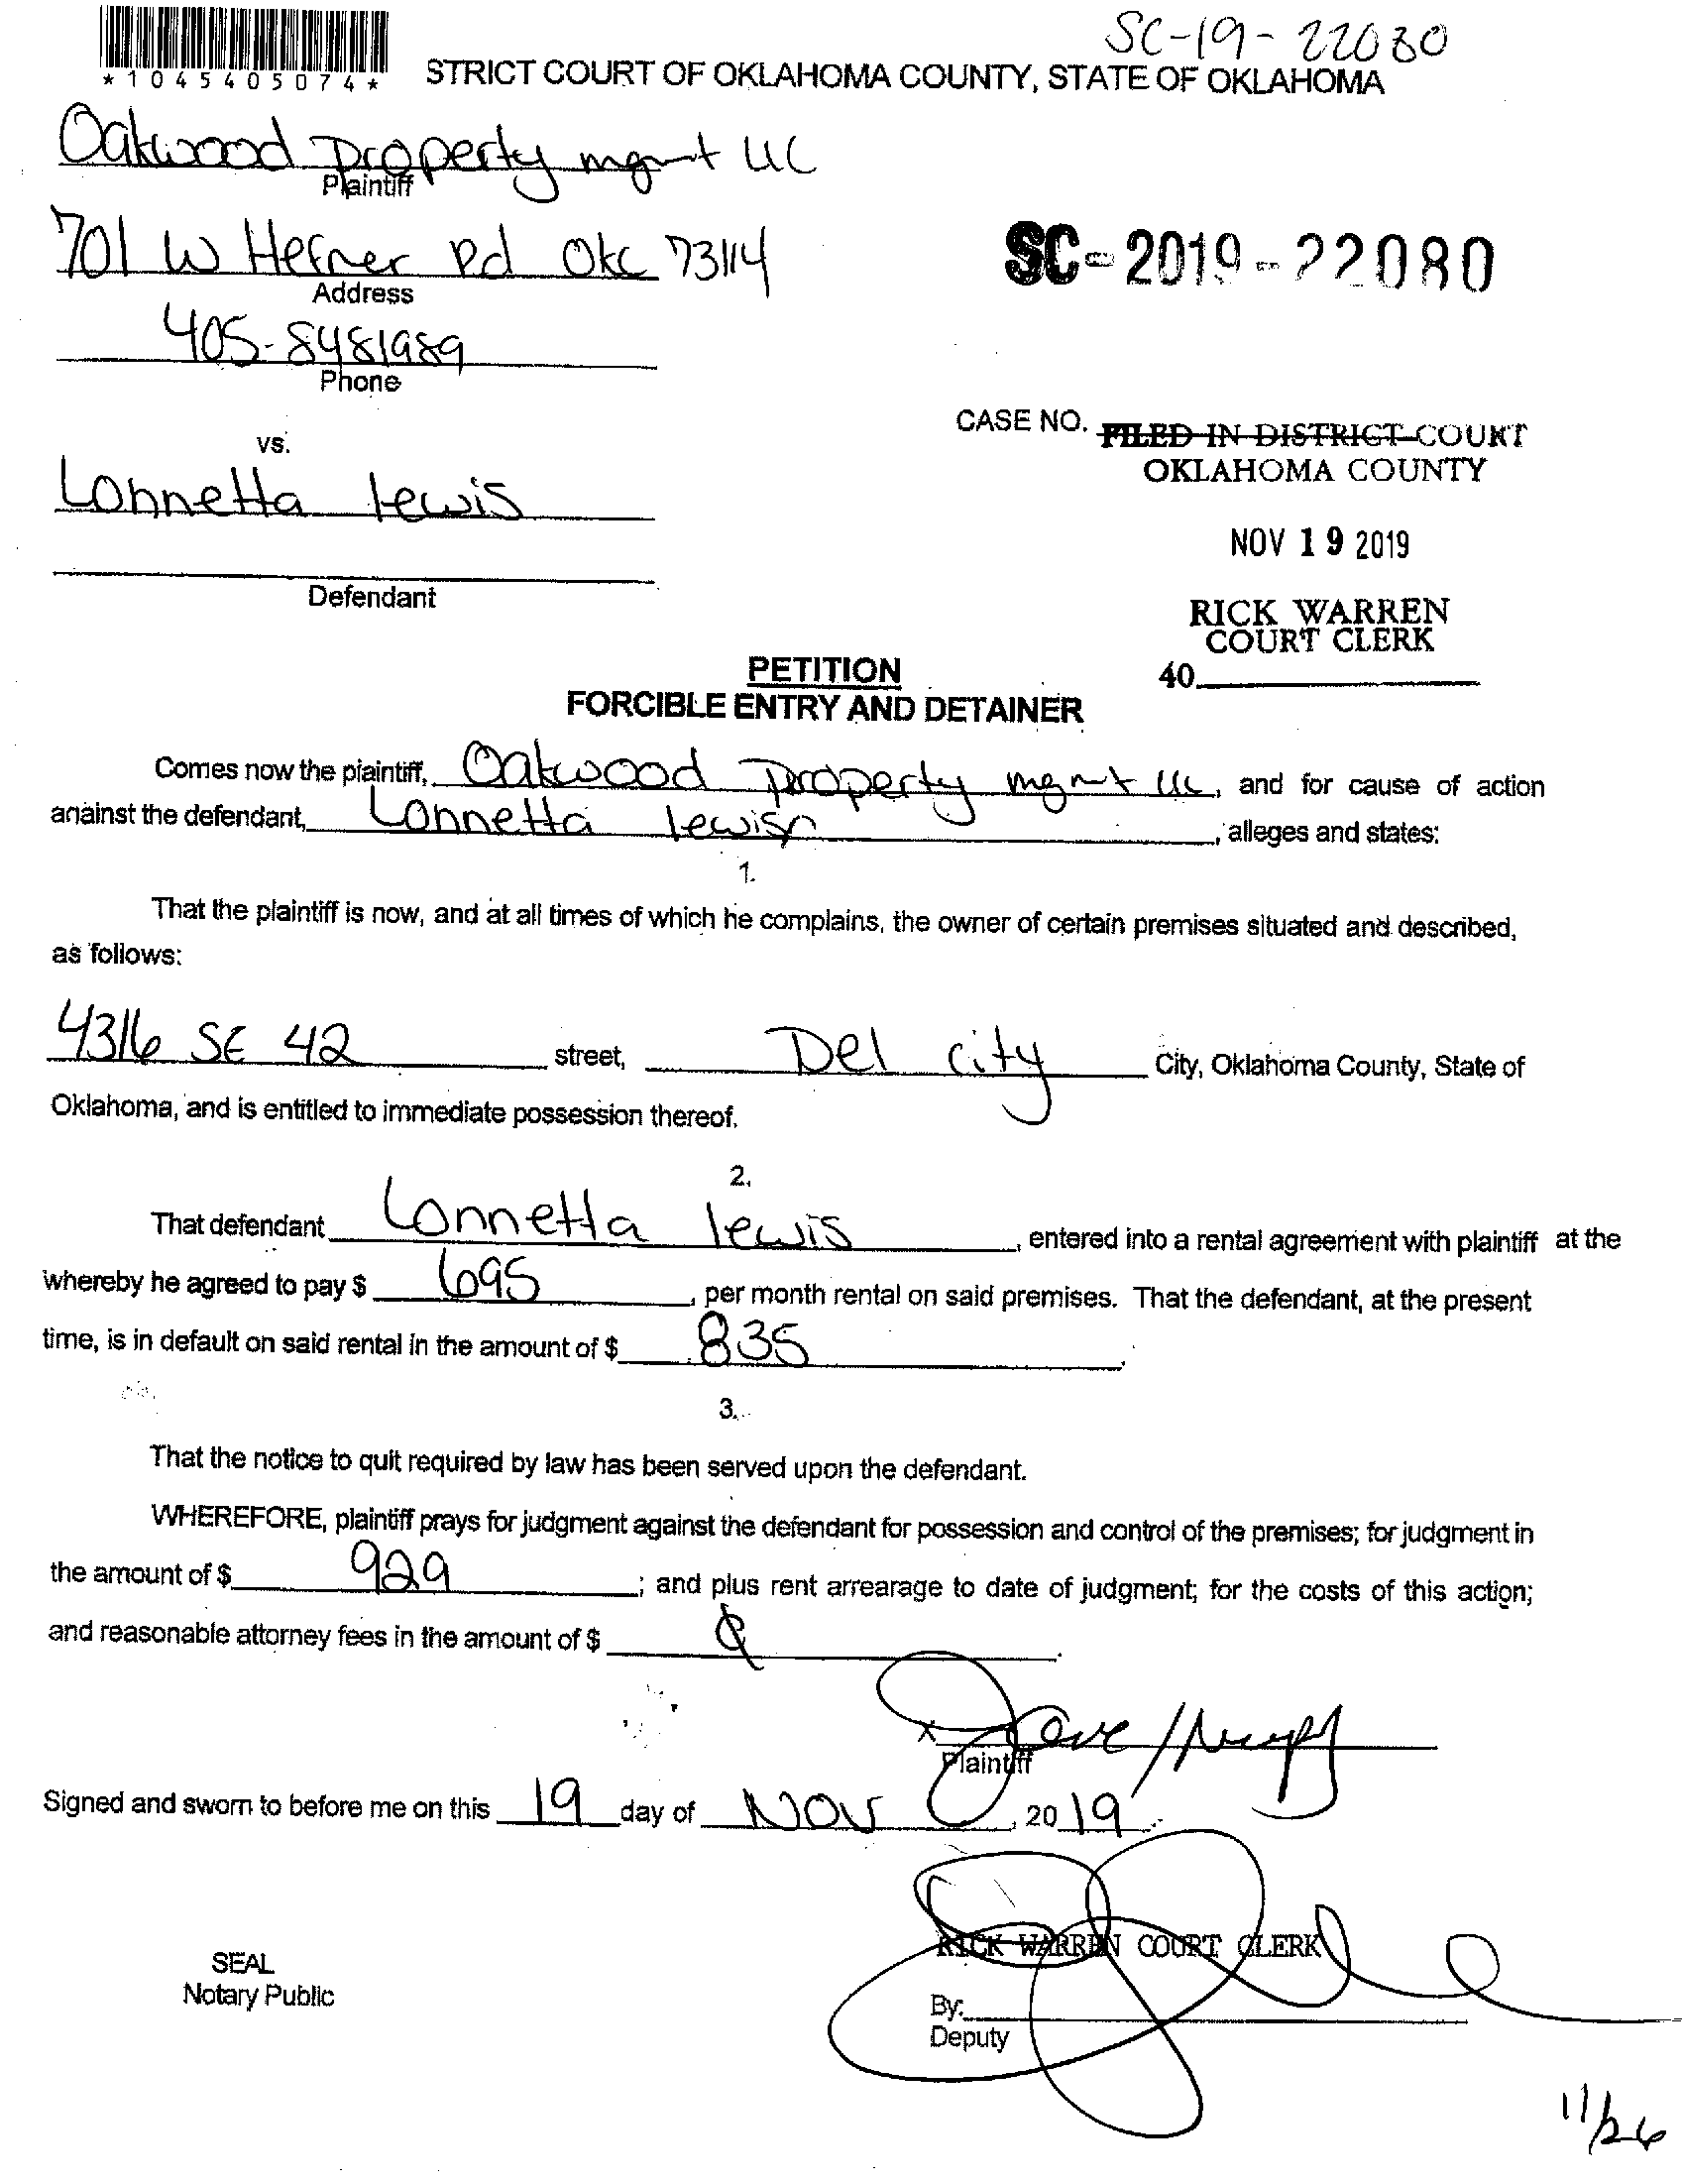 SC-19-22080
*1045405074*
STRICT COURT OF OKLAHOMA COUNTY, STATE OF OKLAHOMA
Oakwood Property mgmt LLC
Plaintiff
701 W Hefner Rd Okc 73114
Address
SC-2019-22080
405-8481989
Phone
CASE NO.
FILED IN DISTRICT COURT
OKLAHOMA COUNTY
vs.
Lonnetta lewis
NOV 19 2019
Defendant
RICK WARREN
COURT CLERK
40
PETITION
FORCIBLE ENTRY AND DETAINER
Comes now the plaintiff, Oakwood Property mgmt LLC, and for cause of action
against the defendant, Lonnetta lewis, alleges and states:
1.
That the plaintiff is now, and at all times of which he complains, the owner of certain premises situated and described,
as follows:
4316 SE 42 street, Del city City, Oklahoma County, State of
Oklahoma, and is entitled to immediate possession thereof.
2.
That defendant Lonnetta lewis, entered into a rental agreement with plaintiff at the
whereby he agreed to pay $ 695, per month rental on said premises. That the defendant, at the present
time, is in default on said rental in the amount of $ 835.
3.
That the notice to quit required by law has been served upon the defendant.
WHEREFORE, plaintiff prays for judgment against the defendant for possession and control of the premises; for judgment in
the amount of $ 929; and plus rent arrearage to date of judgment; for the costs of this action;
and reasonable attorney fees in the amount of $
x
Plaintiff
Signed and sworn to before me on this 19 day of NOV, 20 19.
RICK WARREN COURT CLERK
SEAL
Notary Public
By:
Deputy
11/26